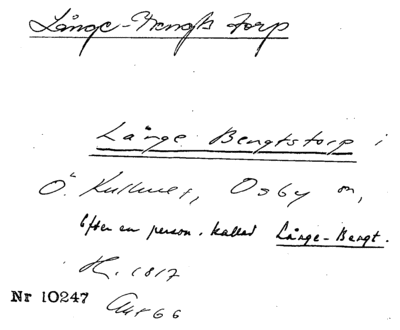 Långe-Bengts torp
Långe Bengtstorp i
Ö. Kullmer, Osby sn,
Efter en person, kallad Långe-Bengt.
H. 1817
Nr 10247